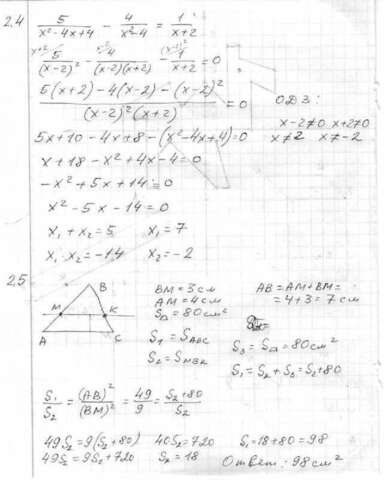 2.4 5/(x²-4x+4) - 4/(x²-4) = 1/(x+2)
5/(x-2)² - 4/((x-2)(x+2)) - 1/(x+2) = 0
(5(x+2) - 4(x-2) - (x-2)²)/((x-2)²(x+2)) = 0
ОДЗ:
x-2≠0 x+2≠0
x≠2 x≠-2
5x+10-4x+8-(x²-4x+4)=0
x+18-x²+4x-4=0
-x²+5x+14=0
x²-5x-14=0
x₁+x₂=5 x₁=7
x₁ x₂=-14 x₂=-2
2.5
B
M K
A C
BM=3см
AM=4см
S△=80см²
S₁=S ABC
S₂=S MBK
AB=AM+BM=
=4+3=7см
S₃=S△=80см²
S₁=S₂+S₃=S₂+80
S₁/S₂ = (AB)²/(BM)² = 49/9 = (S₂+80)/S₂
49S₂=9(S₂+80) 40S₂=720 S₁=18+80=98
49S₂=9S₂+720 S₂=18 Ответ: 98см²